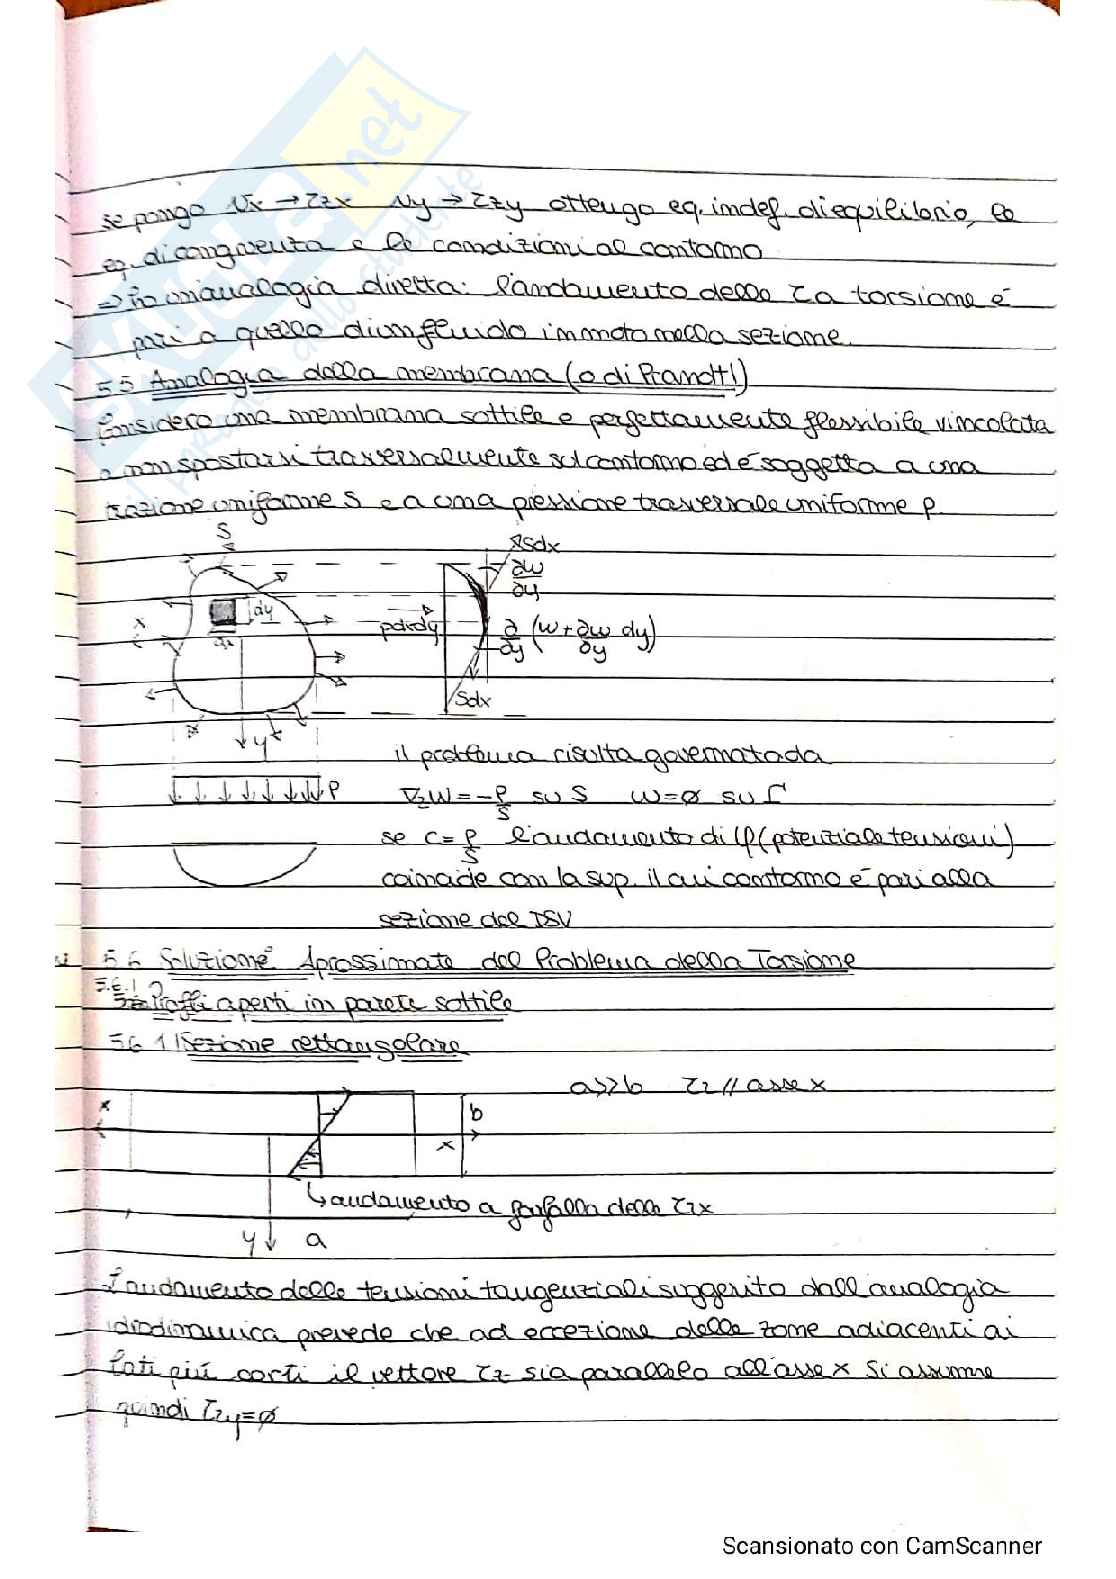 se pongo Vx → τzx Vy → τzy ottengo eq. indef. di equilibrio, le
eq. di congruenza e le condizioni al contorno
⇒ un'analogia diretta: l'andamento delle τ a torsione è
pari a quello di un fluido in moto nella sezione.
5.5 Analogia della membrana (o di Prandtl)
Considero una membrana sottile e perfettamente flessibile vincolata
a non spostarsi trasversalmente sul contorno ed è soggetta a una
trazione uniforme S e a una pressione trasversale uniforme p
S
Sdx
∂w
∂y
dy
x
dx
pdxdy
∂/∂y (w + ∂w/∂y dy)
Sdx
y
il problema risulta governato da
P
∇²w = -p/S su S w=ø su Γ
se c = p/S l'andamento di φ (potenziale tensioni)
coincide con la sup. il cui contorno è pari alla
sezione del DSV
5.6 Soluzione Aprossimata del Problema della Torsione
5.6.1 Profili aperti in parete sottile
5.6.1 Sezione rettangolare
a>>b τz // asse x
x
b
x
↳ andamento a farfalla delle τzx
y a
L'andamento delle tensioni tangenziali suggerito dall'analogia
idrodinamica prevede che ad eccezione delle zone adiacenti ai
lati più corti il vettore τz sia parallelo all'asse x Si assume
quindi τzy=ø
Skuola.net
Scansionato con CamScanner